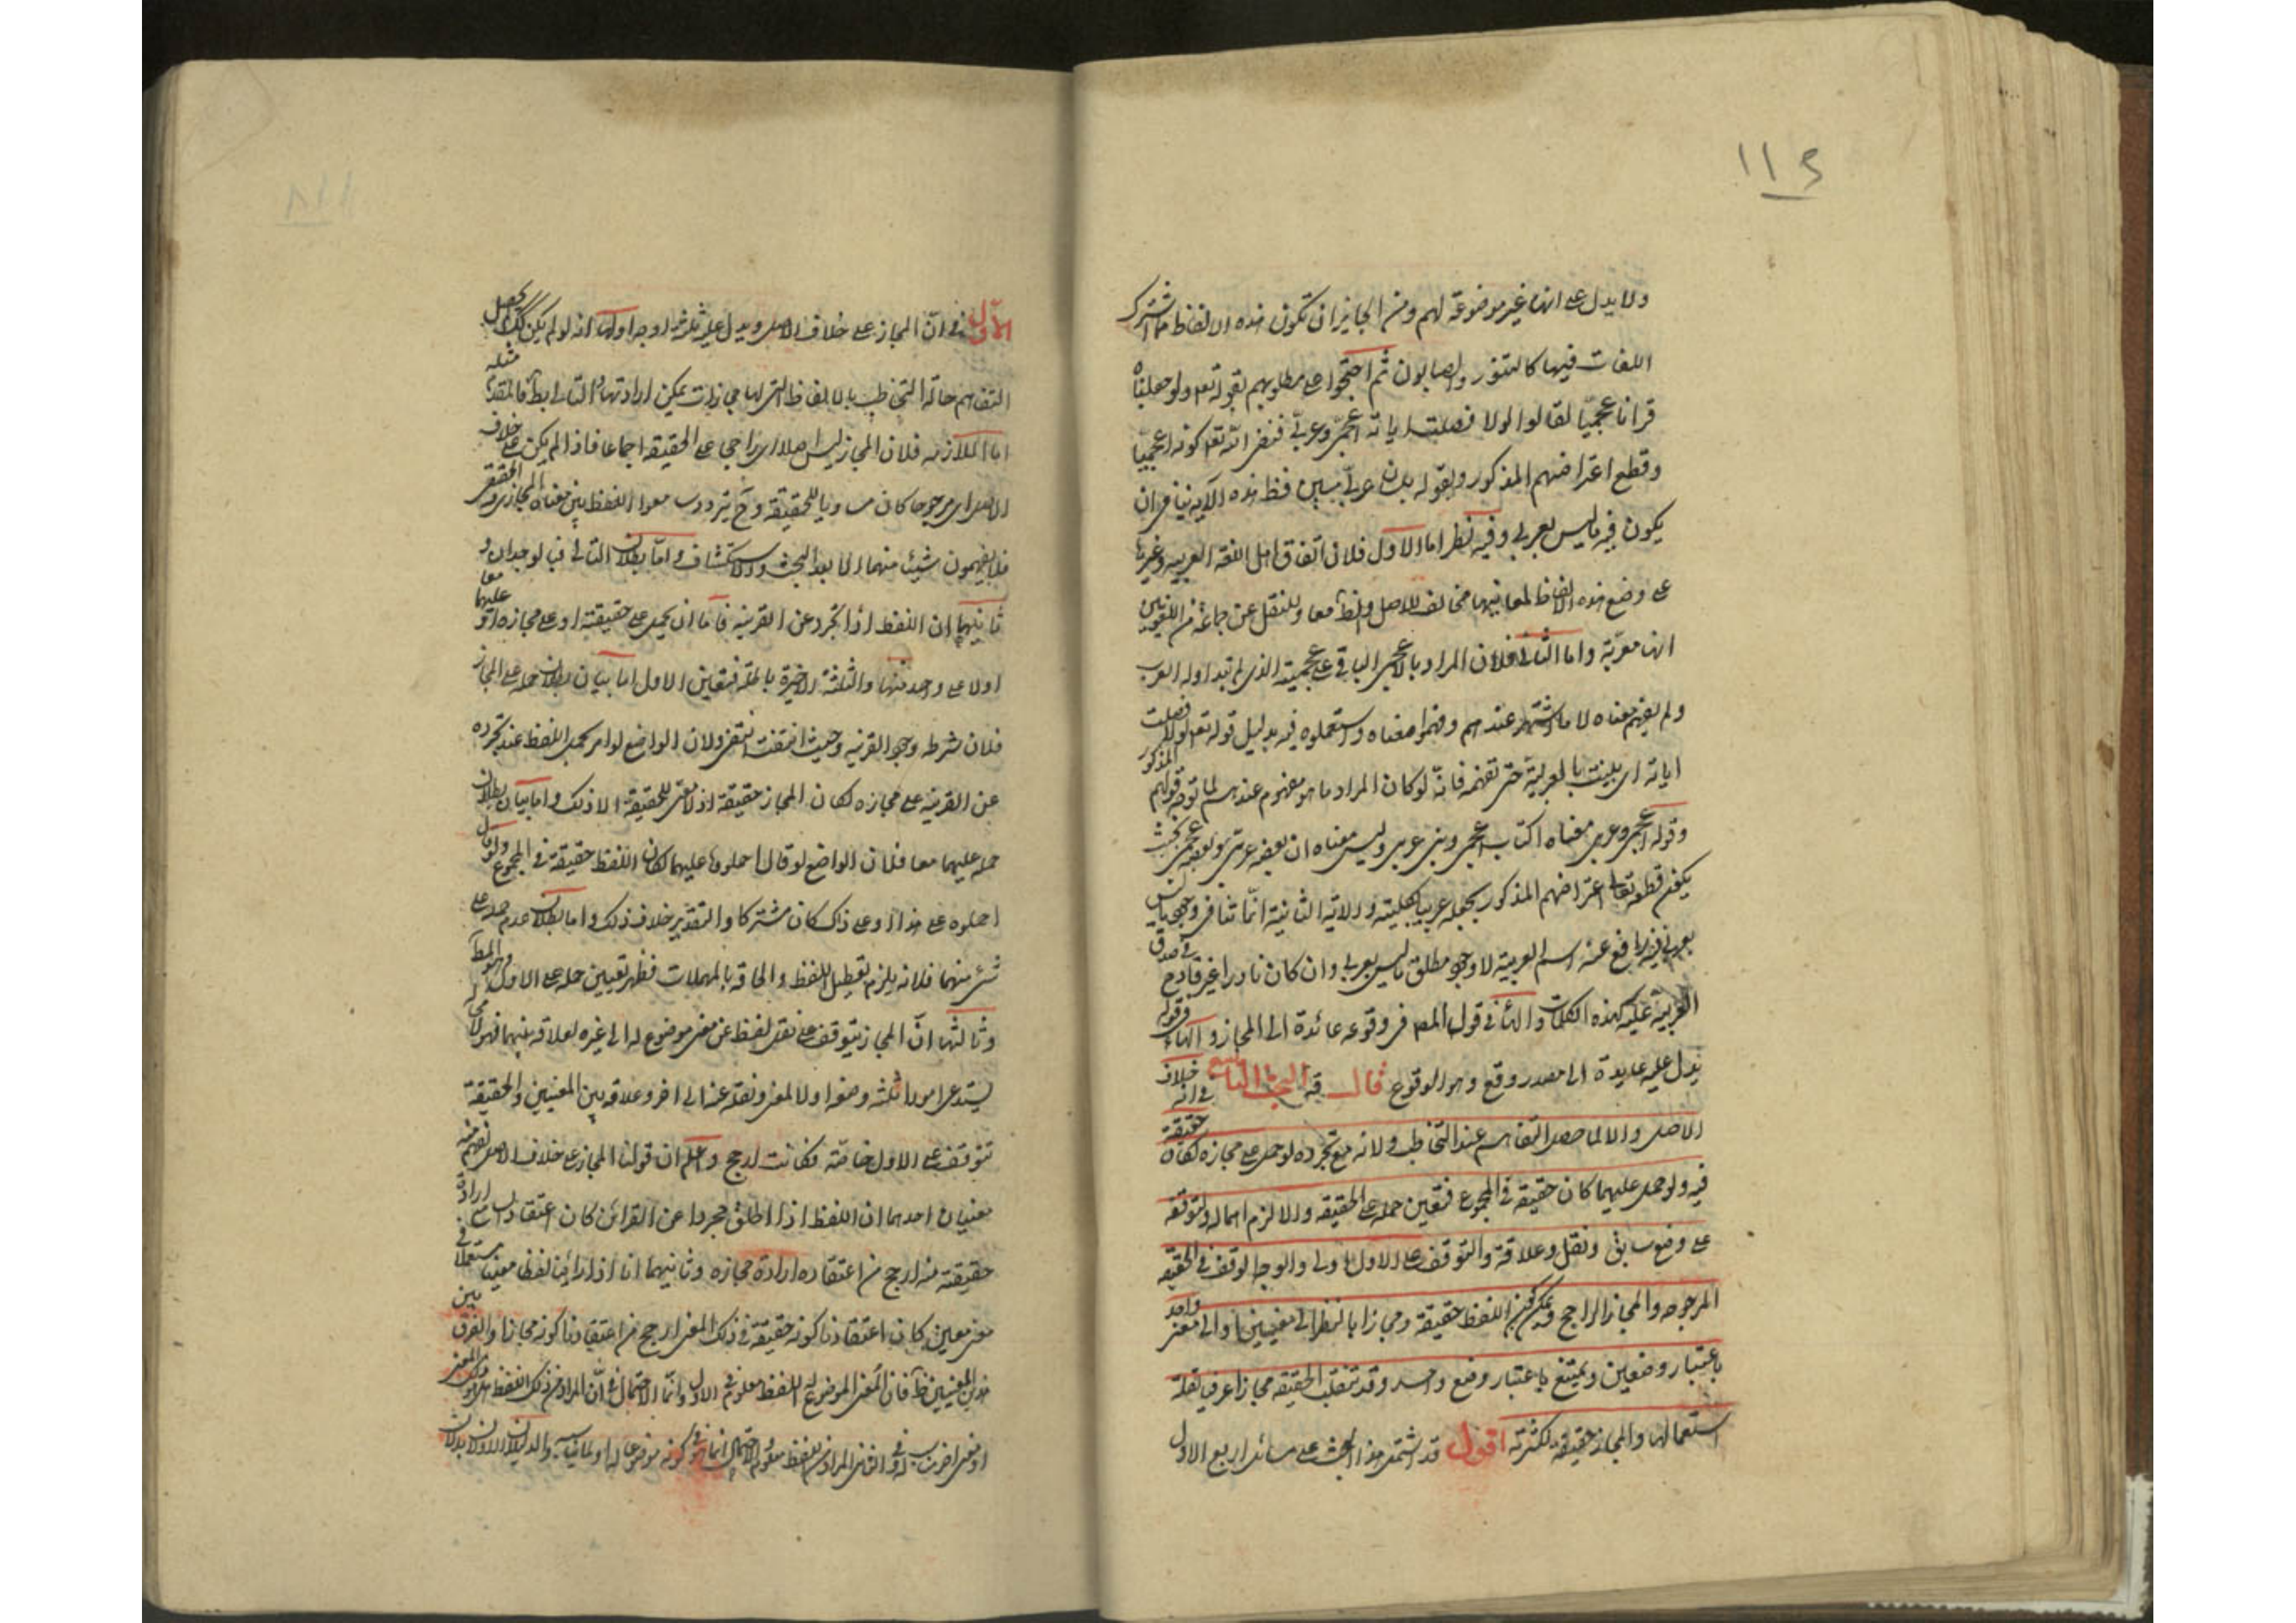 ١١٤
ولا يدل على انها غير موضوعة لهم ومن الجايز ان تكون هذه الالفاظ مما اشترك
اللغات فيها كالتنور والصابون ثم احتجوا على مطلوبهم بقوله تعه ولو جعلناه
قرانا عجميا لقالوا لولا فصلت اياته اعجمى وعربى فنفى الله تعه كونه اعجميا
وقطع اعتراضهم المذكور وبقوله بلسان عربى مبين فظ هذه الآية ينافى ان
يكون فيه ما ليس بعربى وفيه نظر اما الاول فلان اتفاق اهل اللغة العربيه وغيرها
على وضع هذه الالفاظ لمعانيها مخالف للاصل والظ معا وللنقل عن جماعة من اللغويين
انها معربة واما الثانى فلان المراد بالاعجمى الباقى على عجميته الذى لم تتداوله العرب
ولم يفهم معناه لا ما اشتهر عندهم وفهموا معناه واستعملوه فيه بدليل قوله تعه لولا فصلت
اياته اى بينت بالعربية حتى نفهمه فانه لو كان المراد ما هو مفهوم عندهم لما توجه قولهم المذكور
وقوله اعجمى وعربى معناه اكتاب اعجمى ونبى عربى وليس معناه ان بعضه عربى وبعضه عجمى بحيث
يكفى قطعه تعالى اعتراضهم المذكور بجعله عربيا بكليته والاية الثانية انما تنافى وجود ما ليس
بعربى فيه رافع عنه اسم العربية لا وجود مطلق ما ليس بعربى وان كان نادرا غير قادح فى صدق
العربية عليه كهذه الكلمات والهاء فى قول المص فى وقوعه عائدة الى المجاز والهاء فى قوله
يدل عليه عايدة الى مصدر وقع وهو الوقوع قال قه البحث التاسع فى انه خلاف
الاصل والا لما حصل التفاهم عند التخاطب ولانه مع تجرده لو حمل على مجازه لكان حقيقة
فيه ولو حمل عليهما كان حقيقة فى المجموع فتعين حمله على الحقيقه والا لزم اهماله ولتوقفه
على وضع سابق ونقل وعلاقة والتوقف على الاول اولى والوجه الوقف فى الحقيقه
المرجوحه والمجاز الراجح ويمكن كون اللفظ حقيقة ومجازا بالنظر الى معنيين او الى معنى واحد
باعتبار وضعين ويمتنع باعتبار وضع واحد وقد تنقلب الحقيقه مجازا عرفيا لقلة
استعمالها والمجاز حقيقة لكثرته اقول قد اشتمل هذا البحث على مسائل اربع الاول
الاول فى ان المجاز على خلاف الاصل ويدل عليه ثلثة اوجه اولها انه لو لم يكن كذلك لم يحصل
التفاهم حالة التخاطب بالالفاظ التى لها مجازات يمكن ارادتها والتالى بط فالمقدم مثله
اما الملازمه فلان المجاز ليس اصلا اى راجحا على الحقيقة اجماعا فاذا لم يكن على خلاف
الاصل اى مرجوحا كان مساويا للحقيقة وح يتردد سامعوا اللفظ بين معناه المجازى والحقيقى
فلا يفهمون شيئا منهما الا بعد البحث والاستكشاف واما بطلان التالى فبالوجدان و
ثانيها ان اللفظ اذا تجرد عن القرينه فاما ان يحمل على حقيقته او على مجازه او عليهما معا
اولا على واحد منهما والثلثة الاخيرة باطلة فيتعين الاول اما بيان بطلان حمله على المجاز
فلان شرطه وجود القرينه وحيث انتفت انتفى ولان الواضع لو امر بحمل اللفظ عند تجرده
عن القرينه على مجازه لكان المجاز حقيقة اذ لا معنى للحقيقة الا ذلك واما بيان بطلان
حمله عليهما معا فلان الواضع لو قال احملوه عليهما لكان اللفظ حقيقة فى المجموع ولو قال
احملوه على هذا او على ذاك كان مشتركا والتقدير خلاف ذلك واما بطلان عدم حمله على
شئ منهما فلانه يلزم تعطيل اللفظ والحاقه بالمهملات فظهر تعيين حمله على الاول وهو المط
وثالثها ان المجاز يتوقف على نقل لفظ عن معنى موضوع له الى غيره لعلاقه بينهما فهو لا محاله
يستدعى امورا ثلثة وضعه اولا لمعنى ونقله عنه الى اخر وعلاقه بين المعنيين والحقيقة
تتوقف على الاول خاصة فكانت ارجح واعلم ان قولنا المجاز على خلاف الاصل نفهم منه
معنيان احدهما ان اللفظ اذا اطلق مجردا عن القرائن كان اعتقاد ارادة
حقيقته منه ارجح من اعتقاده ارادة مجازه وثانيهما انا اذا راينا لفظا معينا مستعملا فى
معنى معين كان اعتقادنا كونه حقيقة فى ذلك المعنى ارجح من اعتقادنا كونه مجازا والفرق بين
هذين المعنيين ظ فان المعنى الموضوع له اللفظ معلوم فى الاول وانما الاحتمال فى ان المراد من ذلك اللفظ